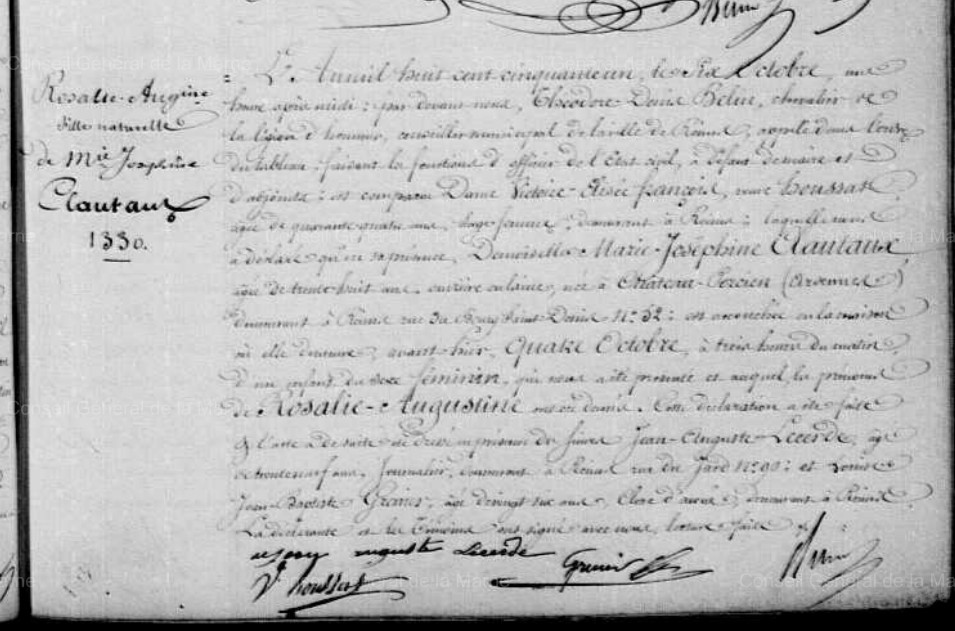 Rosalie-Augine
fille naturelle
de Mie Josephine
Clautaux
1330.
L'An mil huit cent cinquante un, le six Octobre, une
heure après midi : par devant nous, Théodore-Denis Belin, chevalier de
la légion d'honneur, conseiller municipal de la ville de Reims, appelé dans l'ordre
du tableau, faisant les fonctions d'officier de l'Etat civil, à défaut de maire et
d'adjoints : est comparue Dame Victoire-Elisée françois, veuve houssart
âgée de quarante quatre ans, sage femme, demeurant à Reims : laquelle nous
a déclaré qu'en sa présence, Demoiselle Marie-Joséphine Clautaux
âgée de trente huit ans, ouvrière en laine, née à Château-Porcien (Ardennes)
demeurant à Reims rue du Bourg Saint Denis No. 52 : est accouchée en la maison
où elle demeure, avant hier, Quatre Octobre, à trois heures du matin,
d'un enfant du sexe féminin, qui nous a été présenté et auquel les prénoms
de Rosalie-Augustine ont été donnés. Cette déclaration a été faite
& l'acte a de suite été dressé en présence de sieurs Jean-Auguste Lecerde, âgé
de trente neuf ans, Journalier, demeurant à Reims rue du Jard No. 90 : et Louis
Jean-Baptiste Grenier, âgé de vingt six ans, Clerc d'avoué, demeurant à Reims
La déclarante et les Témoins ont signé avec nous, lecture faite
auguste Lecerde
Ve houssart
Grenier
Belin
Conseil Général de la Marne